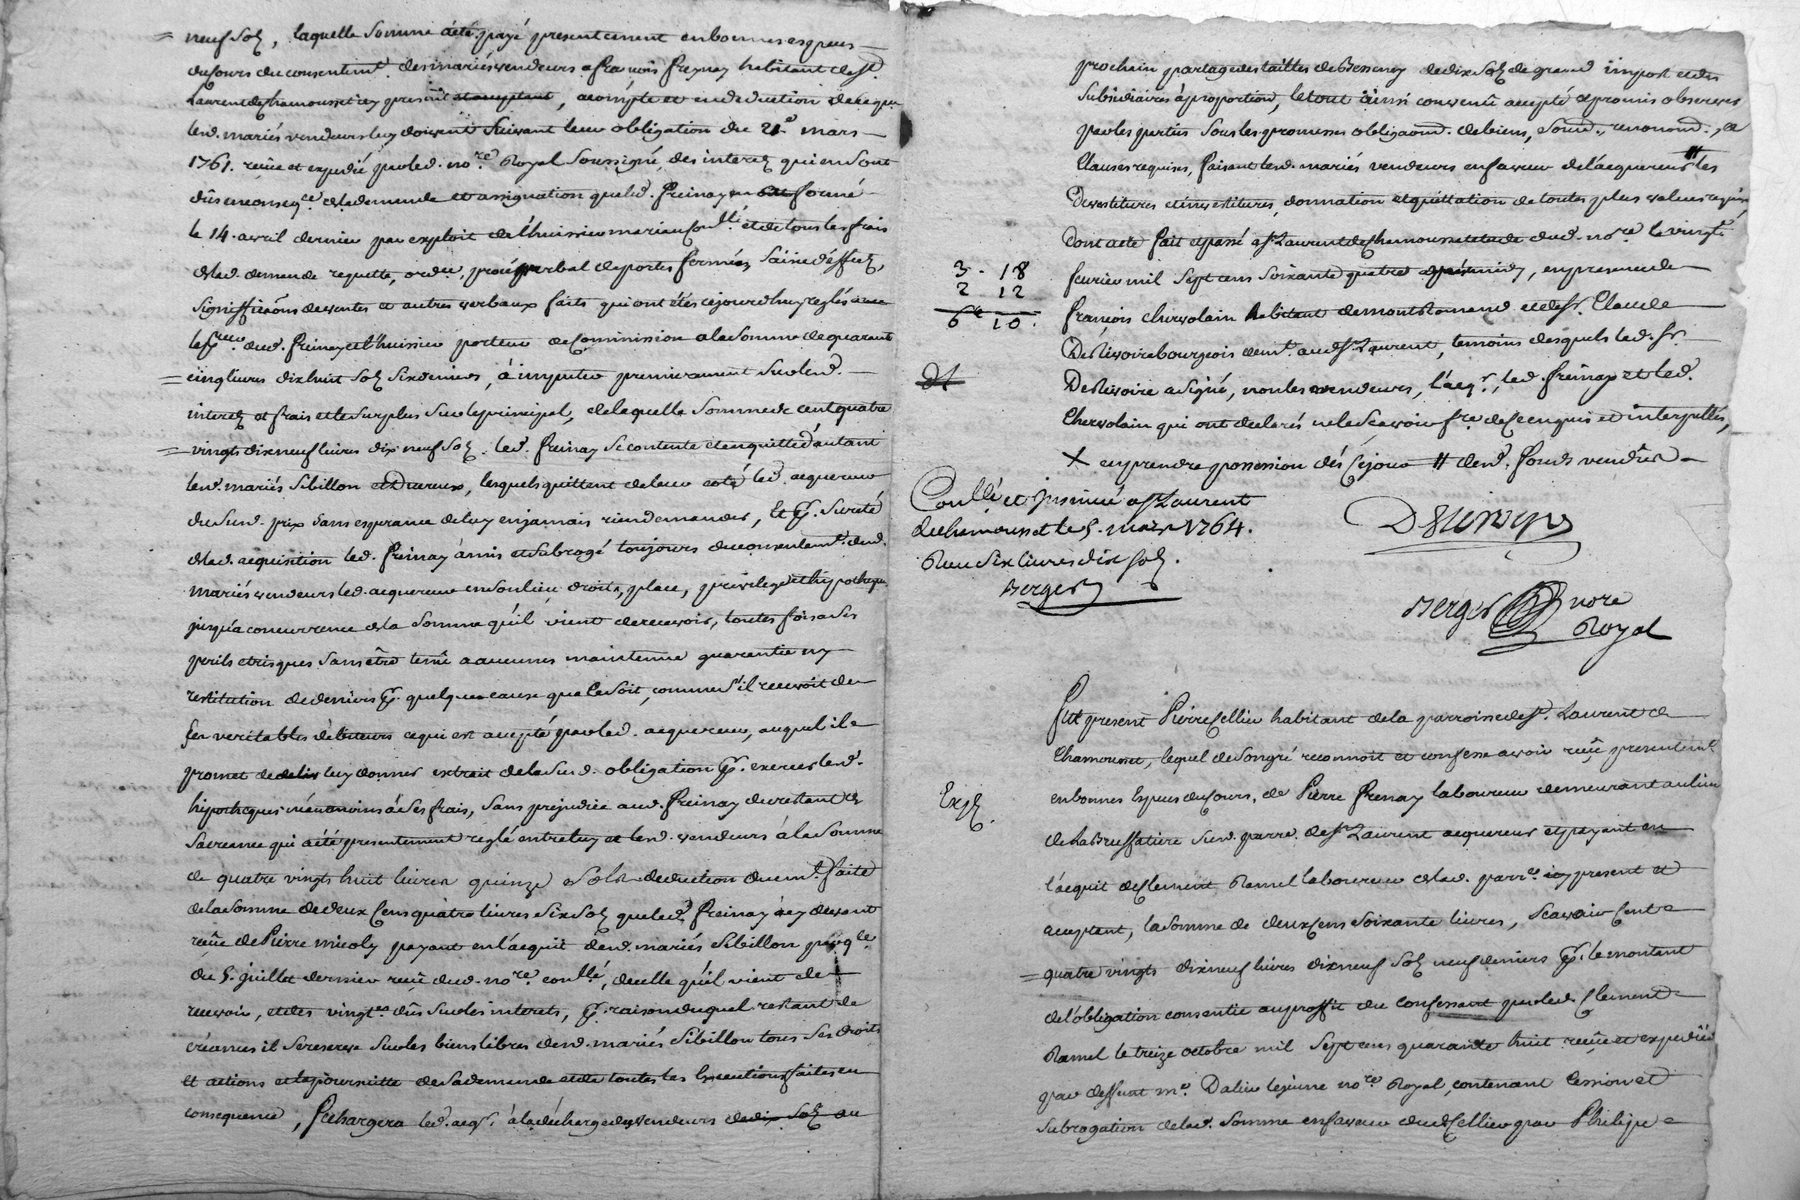 neuf solz, laquelle somme a été payé presentement en bonnes especes
du cours du consentemt. des mariés vendeurs a françois freynay habitant de st.
Laurent de chamousset icy present et acceptant, acompte et en deduction de ce que
lesd. mariés vendeurs luy doivent suivant leur obligation du 21e mars
1761. reçûe et expedié par led. nore. Royal soussigné, des interetz qui en sont
dûs en conseqce. de la demande et assignation que led. freinay formé
le 14. avril dernier par exploit de l'huissier et de tous les frais
de lad. demande requette, ordce, procés verbal de portes fermées, saisie d'effetz,
signiffications de ventes et autres verbaux faits qui ont étés cejourdhuy reglés avec
le dud. freinay et l'huissier porteur de commission a la somme de quarante
cinq livres dix huit solz six deniers, à imputer premierement sur lesd.
interetz et frais et le surplus sur le principal, de laquelle somme de cent quatre
vingts dix neuf livres dix neuf solz. led. freinay se contente et en quitte d'autant
lesd. mariés Sibillon et vendeurs, lesquels quittent de leur coté led. acquereur
du susd. prix sans esperance de luy en jamais rien demander, et pr. sureté
de lad. acquisition led. freinay à mis et subrogé toujours du consentemt. desd.
mariés vendeurs led. acquereur en son lieu, droits, place, privilege et hypotheque
jusqu'a concurrence de la somme qu'il vient de recevoir, toutes fois a ses
perils et risques sans être tenû a aucunes maintenue guarentie ny
restitution de deniers pr. quelque cause que ce soit, comme s'il recevoit de
ses veritables débiteurs ce qui est accepté par led. acquereur, auquel il
promet de luy donner extrait de la susd. obligation pr. exercer lesd.
hypotheques néanmoins à ses frais, sans prejudice aud. freinay du restant de
sa creance qui a été presentement reglé entre luy et lesd. vendeurs à la somme
de quatre vingts huit livres quinze sols deduction duemt. faite
de la somme de deux cens quatre livres six solz que led. freinay a cy devant
reçûe de Pierre micoly payant en l'acquit desd. mariés Sibillon par qce.
du 5. juillet dernier reçûe dud. nore. conllé, de celle qu'il vient de
recevoir, et des vingtes. dûs sur les interets, pr. raison duquel restant de
créances il se reserve sur les biens libres desd. mariés Sibillon tous ses droits
et actions et la poursuitte de sa demande et de toutes les executions faites en
consequence, se chargera led. acqr. à la décharge des vendeurs de dix solz au
prochain partage des tailles de Bessenay de dix solz de grand impost et des
subsidiaires à proportion, le tout ainsi convenû accepté et promis observer
par les parties sous les promesses obligaond. de biens, soumd., renonond., et
clauses requises, faisant lesd. mariés vendeurs en faveur de l'acquereur # les
Devestitures et investitures, donnation et quittation de toutes plus values requises
Dont acte fait et passé a st. Laurent de chamousset etude dud. nore. le vingt
3 - 18
2 12
6# 10.
fevrier mil sept cens soixante quatre, en presence de
françois chervolain habitant de montromand et de sr. Claude
Desrivoire bourgeois demt. aud. st. Laurent, temoins desquels led. sr.
Desrivoire a signé, non les vendeurs, l'acqr., led. freinay et led.
Chervolain qui ont declarés ne le scavoir fre. de ce enquis et interpellés,
X en prendre possession dés ce jour # desd. fonds vendûs
Conllé et insinué a st. Laurent
de chamousset le 5. mars 1764.
Reçu six livres dix solz.
Berger
Desrivoire
Berger nore
Royal
Expé.
Fut present Pierre Cellier habitant de la parroisse de st. Laurent de
Chamousset, lequel de son gré reconnoit et confesse avoir reçû presentemt.
en bonnes especes du cours, de Pierre Frenay laboureur demeurant au lieu
de la Bruffatiere susd. parre. de st. Laurent acquereur et payant en
l'acquit de Clement Ramel laboureur de lad. parrce. icy present et
acceptant, la somme de deux cens soixante livres, scavoir cent
quatre vingts dix neuf livres dix neuf solz neuf deniers pr. le montant
de l'obligation consentie au proffit du confessant par led. Clement
Ramel le treize octobre mil sept cens quarante huit reçûe et expediée
par deffunt me. Dalin lejeune nore. Royal, contenant cession et
subrogation de lad. somme en faveur dud. Cellier par Philipe